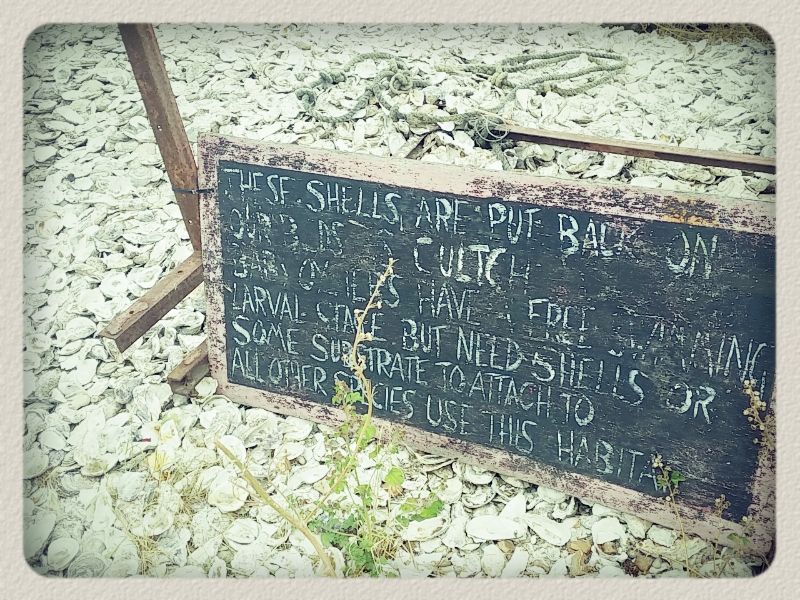 THESE SHELLS ARE PUT BACK ON
OUR CULTCH
BABY OYSTERS HAVE A FREE SWIMMING
LARVAL STAGE BUT NEED SHELLS OR
SOME SUBSTRATE TO ATTACH TO
ALL OTHER SPECIES USE THIS HABITA